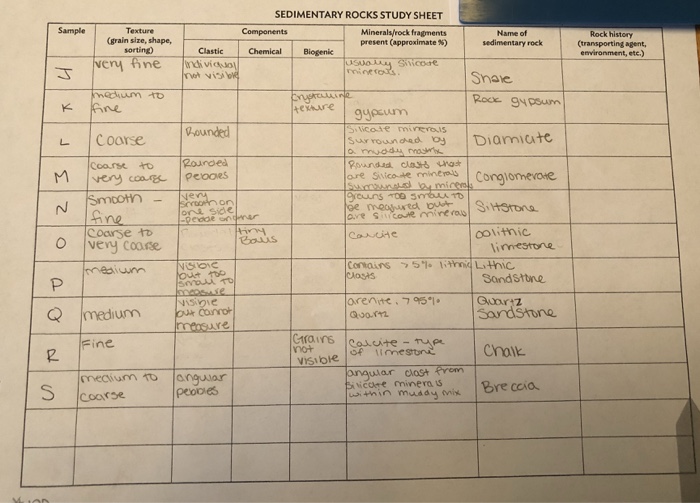 SEDIMENTARY ROCKS STUDY SHEET
Sample
Texture
(grain size, shape,
sorting)
Components
Clastic
Chemical
Biogenic
Minerals/rock fragments
present (approximate %)
Name of
sedimentary rock
Rock history
(transporting agent,
environment, etc.)
J
very fine
individual
not visible
usually silicate
minerals.
Shale
K
medium to
fine
crystalline
texture
gypsum
Rock gypsum
L
coarse
Rounded
Silicate minerals
surrounded by
a muddy matrix
Diamicite
M
coarse to
very coarse
Rounded
pebbles
Rounded clasts that
are silicate minerals
surrounded by mineral
Conglomerate
N
Smooth -
fine
very
smooth on
one side
grains too small to
be measured but
are silicate mineral
Siltstone
O
coarse to
very coarse
tiny
Balls
Calcite
oolithic
limestone
P
medium
visible
but too
small to
measure
contains >5% lithnic
clasts
Lithic
Sandstone
Q
medium
visible
but cannot
measure
arenite, >95%
Quartz
Quartz
Sandstone
R
Fine
Grains
not
visible
Calcite - type
of limestone
Chalk
S
medium to
coarse
angular
pebbles
angular clast from
silicate minerals
within muddy mix
Breccia